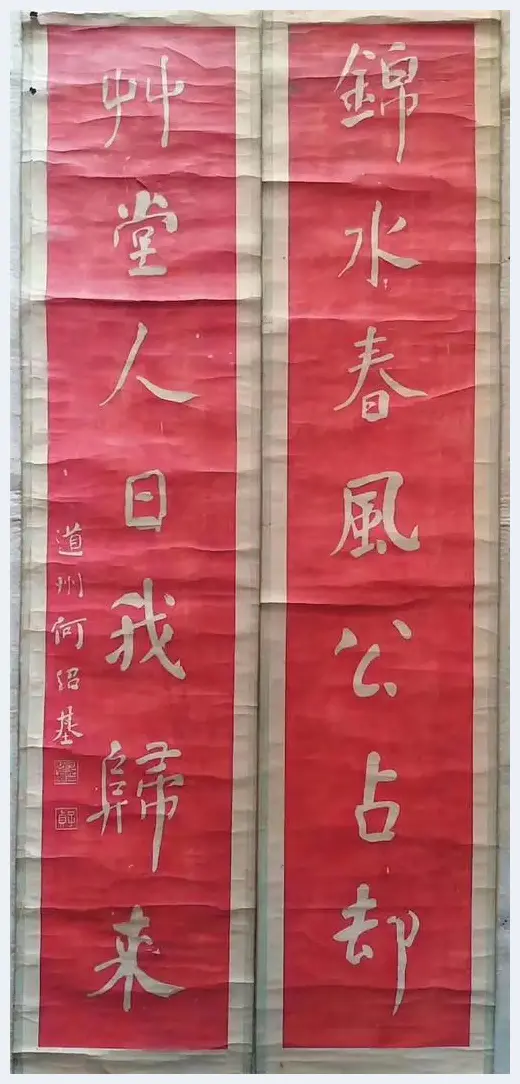 錦水春風公占却
艸堂人日我歸来
道州何紹基